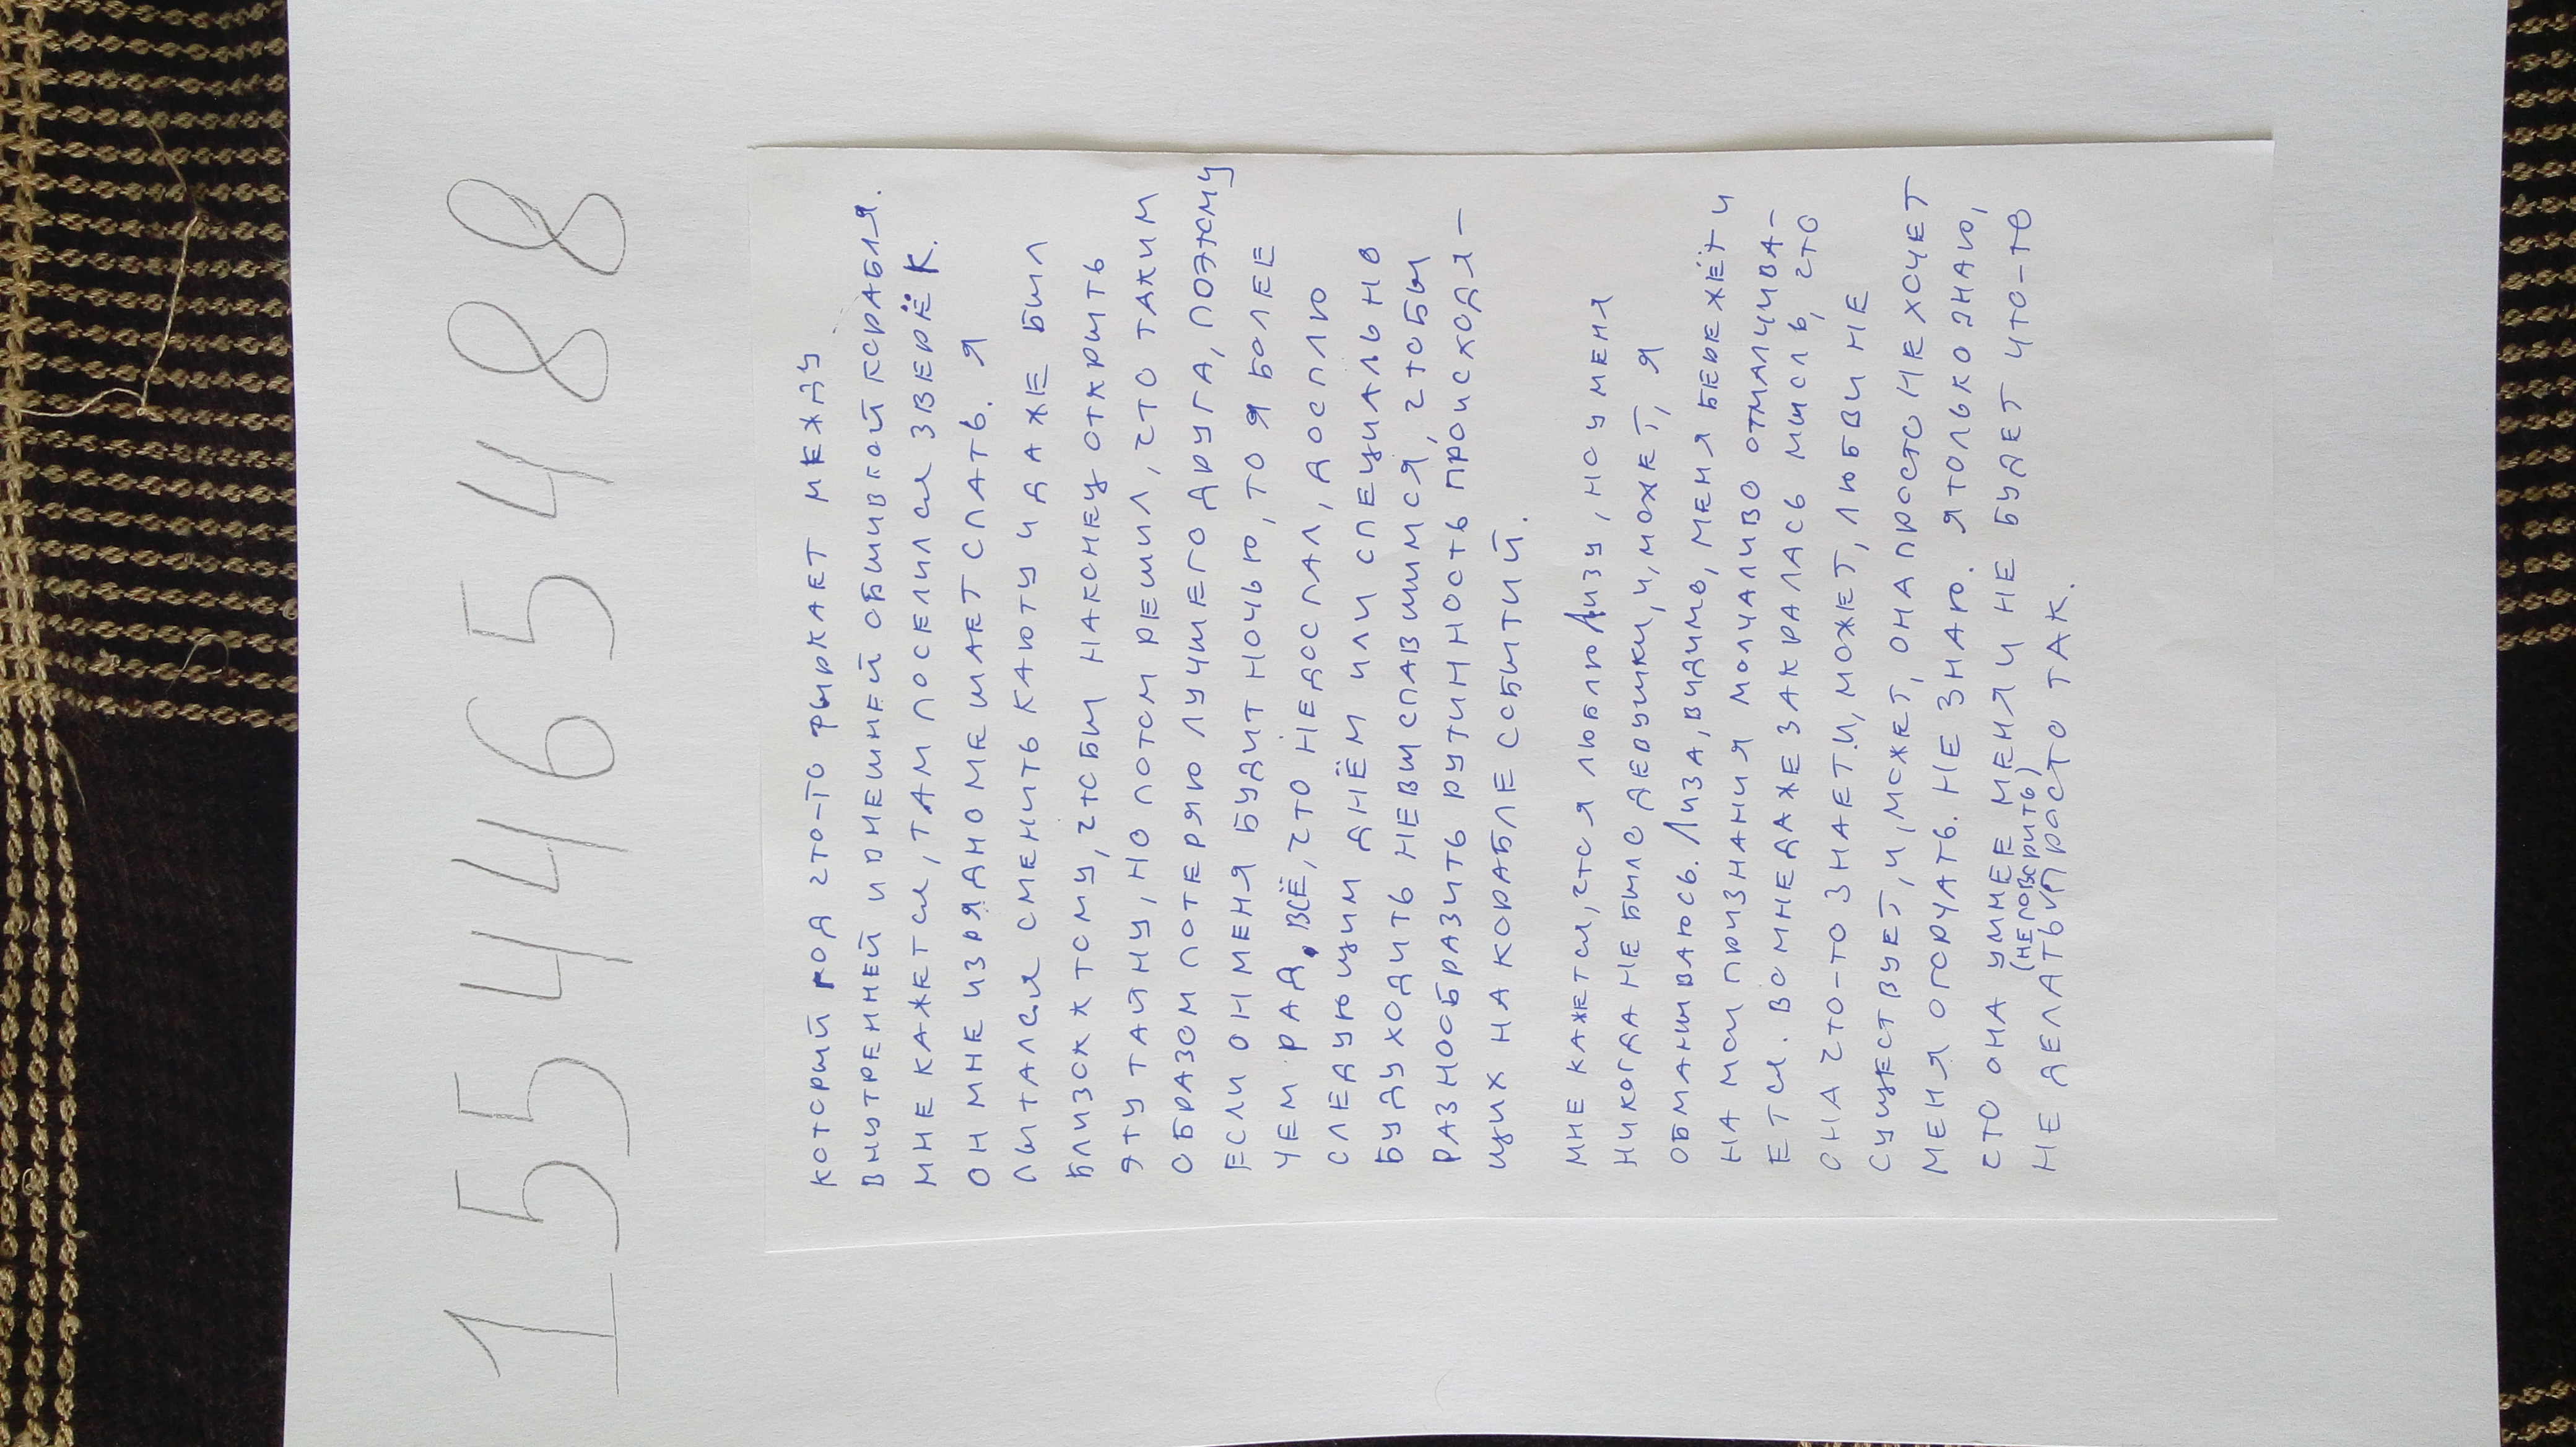 154465488
КОТОРЫЙ ГОД ЧТО-ТО ФЫРКАЕТ МЕЖДУ
ВНУТРЕННЕЙ И ВНЕШНЕЙ ОБШИВКОЙ КОРАБЛЯ.
МНЕ КАЖЕТСЯ, ТАМ ПОСЕЛИЛСЯ ЗВЕРЁК.
ОН МНЕ ИЗРЯДНО МЕШАЕТ СПАТЬ. Я
ПЫТАЛСЯ СМЕНИТЬ КАЮТУ И ДАЖЕ БЫЛ
БЛИЗОК К ТОМУ, ЧТОБЫ НАКОНЕЦ ОТКРЫТЬ
ЭТУ ТАЙНУ, НО ПОТОМ РЕШИЛ, ЧТО ТАКИМ
ОБРАЗОМ ПОТЕРЯЮ ЛУЧШЕГО ДРУГА, ПОЭТОМУ
ЕСЛИ ОН МЕНЯ БУДИТ НОЧЬЮ, ТО Я БОЛЕЕ
ЧЕМ РАД. ВСЁ, ЧТО НЕДОСПАЛ, ДОСПЛЮ
СЛЕДУЮЩИМ ДНЁМ ИЛИ СПЕЦИАЛЬНО
БУДУ ХОДИТЬ НЕВЫСПАВШИМСЯ, ЧТОБЫ
РАЗНООБРАЗИТЬ РУТИННОСТЬ ПРОИСХОДЯ-
ЩИХ НА КОРАБЛЕ СОБЫТИЙ.
МНЕ КАЖЕТСЯ, ЧТО Я ЛЮБЛЮ ЛИЗУ, НО У МЕНЯ
НИКОГДА НЕ БЫЛО ДЕВУШКИ, И, МОЖЕТ, Я
ОБМАНЫВАЮСЬ. ЛИЗА, ВИДИМО, МЕНЯ БЕРЕЖЁТ И
НА МОИ ПРИЗНАНИЯ МОЛЧАЛИВО ОТМАЛЧИВА-
ЕТСЯ. ВО МНЕ ДАЖЕ ЗАКРАЛАСЬ МЫСЛЬ, ЧТО
ОНА ЧТО-ТО ЗНАЕТ И, МОЖЕТ, ЛЮБВИ НЕ
СУЩЕСТВУЕТ, И, МОЖЕТ, ОНА ПРОСТО НЕ ХОЧЕТ
МЕНЯ ОГОРЧАТЬ. НЕ ЗНАЮ. Я ТОЛЬКО ЗНАЮ,
ЧТО ОНА УМНЕЕ МЕНЯ И НЕ БУДЕТ ЧТО-ТО
(НЕ ГОВОРИТЬ)
НЕ ДЕЛАТЬ ПРОСТО ТАК.